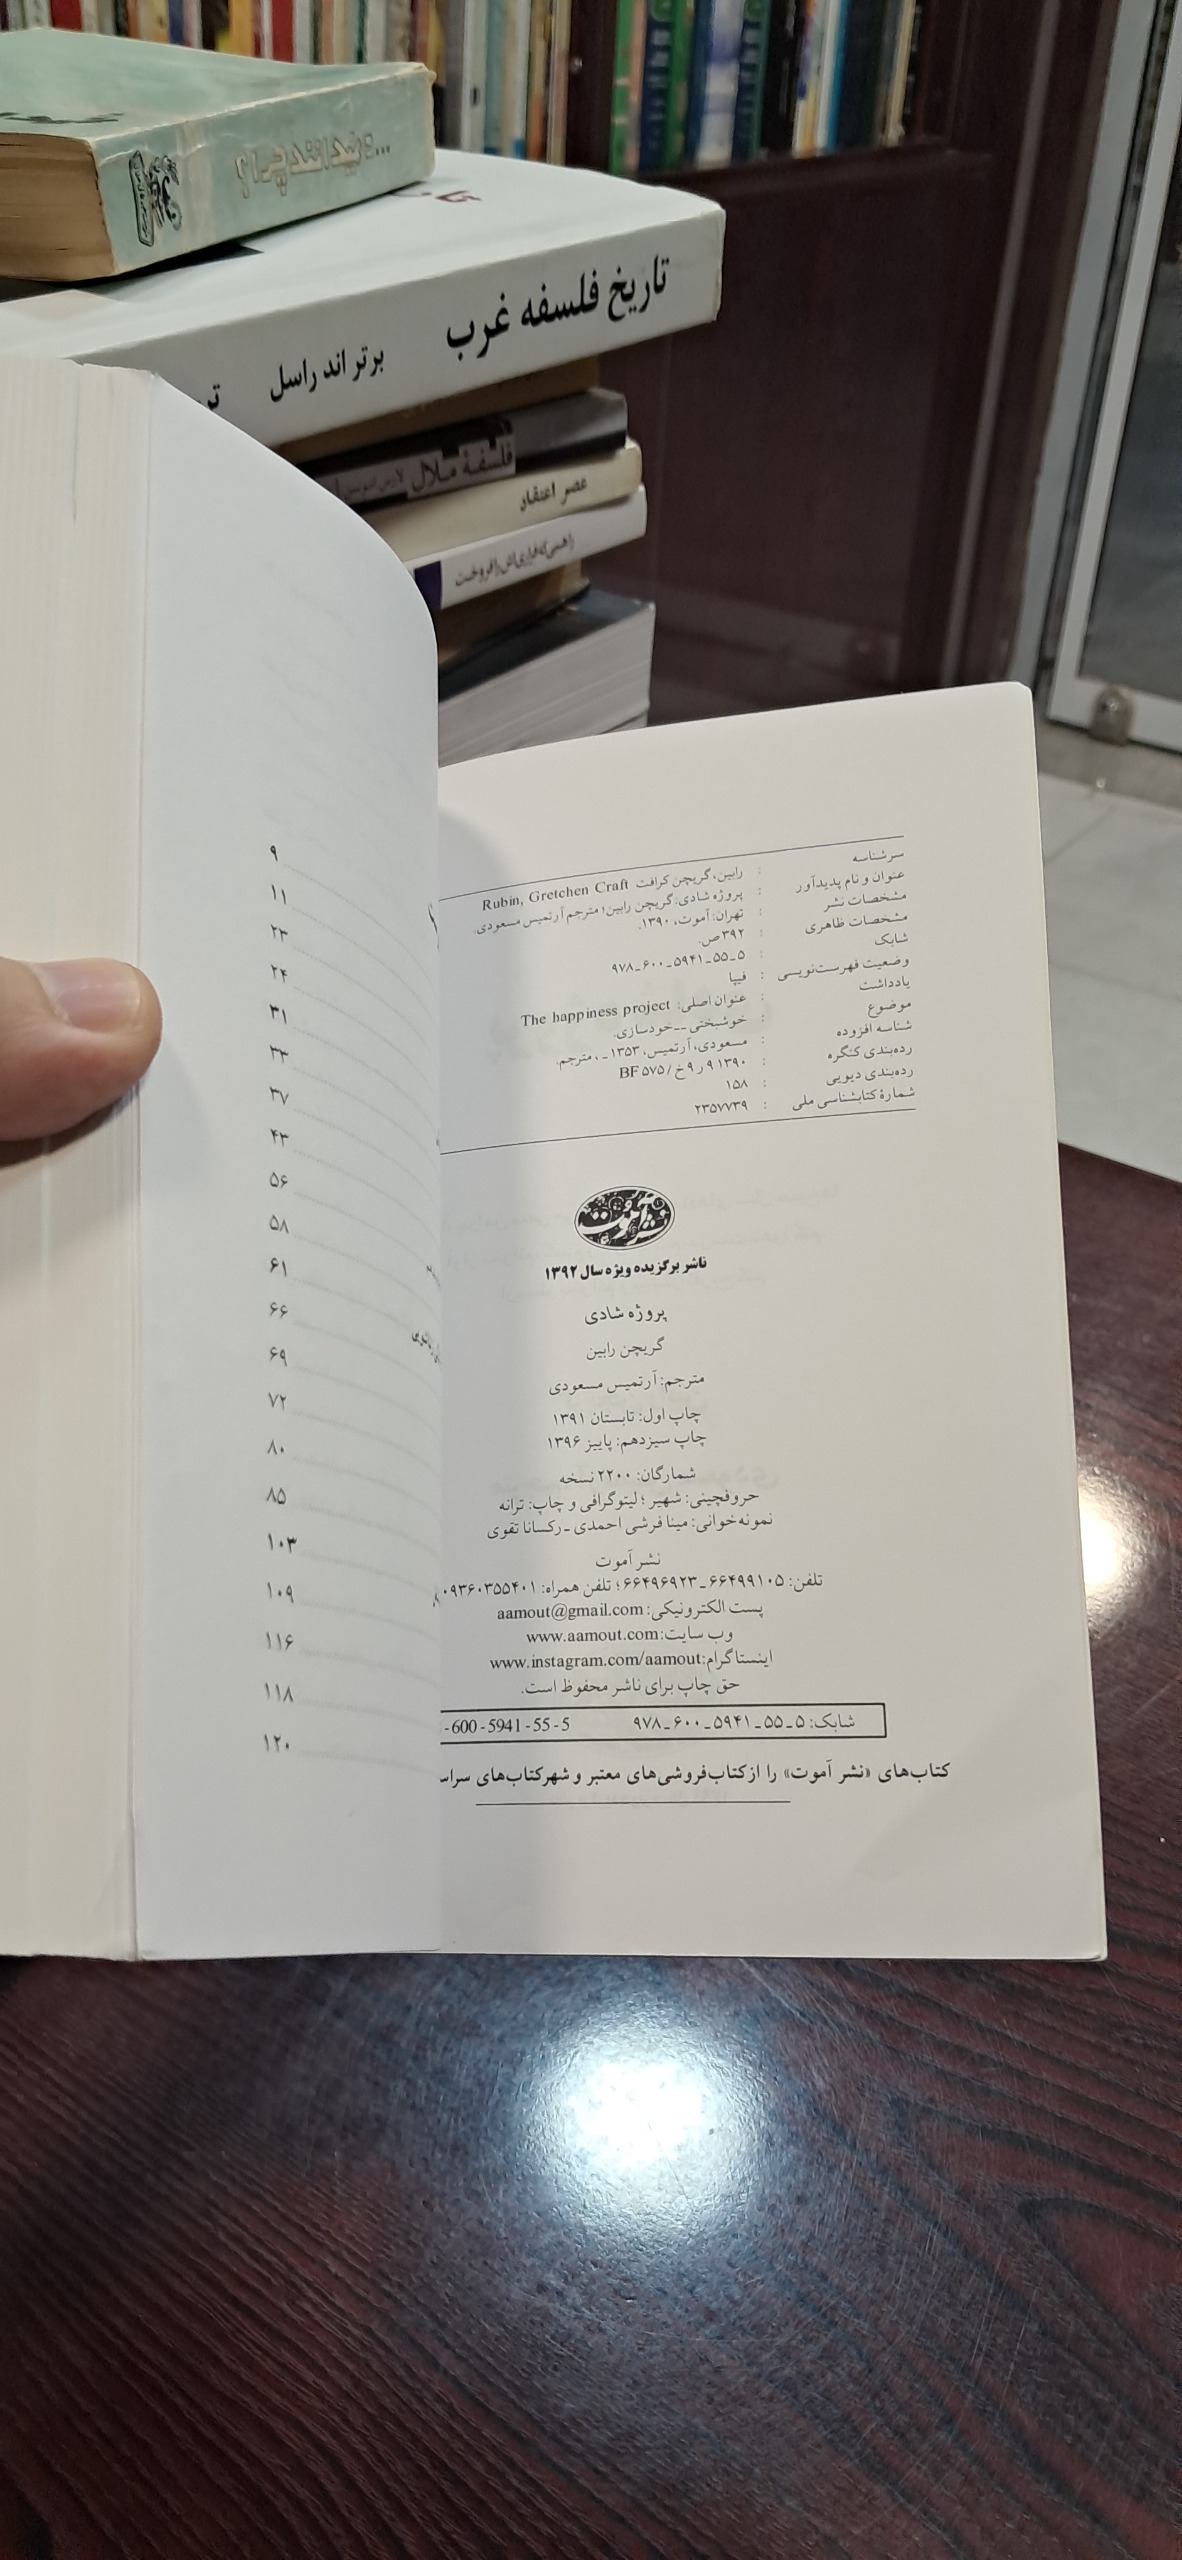 ... نمیدانند چرا؟
تاریخ فلسفه غرب
برتراند راسل
فلسفهٔ ملال
عصر اعتقاد
راهبی که فراری‌اش را فروخت
سرشناسه : رابین، گریچن کرافت Rubin, Gretchen Craft
عنوان و نام پدیدآور : پروژه شادی: گریچن رابین؛ مترجم آرتمیس مسعودی.
مشخصات نشر : تهران: آموت، ۱۳۹۰.
مشخصات ظاهری : ۳۹۲ص.
شابک : ۹۷۸_۶۰۰_۵۹۴۱_۵۵_۵
وضعیت فهرست‌نویسی : فیپا
یادداشت : عنوان اصلی: The happiness project
موضوع : خوشبختی --خودسازی.
شناسه افزوده : مسعودی، آرتمیس، ۱۳۵۳ ـ ، مترجم.
رده‌بندی کنگره : ۱۳۹۰ ۹ر۹خ/ BF۵۷۵
رده‌بندی دیویی : ۱۵۸
شمارهٔ کتابشناسی ملی : ۲۳۵۷۷۳۹
نشر آموت
ناشر برگزیده ویژه سال ۱۳۹۲
پروژه شادی
گریچن رابین
مترجم: آرتمیس مسعودی
چاپ اول: تابستان ۱۳۹۱
چاپ سیزدهم: پاییز ۱۳۹۶
شمارگان: ۲۲۰۰ نسخه
حروفچینی: شهیر ؛ لیتوگرافی و چاپ: ترانه
نمونه‌خوانی: مینا فرشی احمدی ـ رکسانا تقوی
نشر آموت
تلفن: ۶۶۴۹۹۱۰۵_۶۶۴۹۶۹۲۳؛ تلفن همراه: ۰۹۳۶۰۳۵۵۴۰۱
پست الکترونیکی: aamout@gmail.com
وب سایت: www.aamout.com
اینستاگرام: www.instagram.com/aamout
حق چاپ برای ناشر محفوظ است.
شابک: ۵_۵۵_۵۹۴۱_۶۰۰_۹۷۸ -600-5941-55-5
کتاب‌های «نشر آموت» را از کتاب‌فروشی‌های معتبر و شهرکتاب‌های
۹
۱۱
۲۳
۲۴
۳۱
۳۳
۳۷
۴۳
۵۶
۵۸
۶۱
۶۶
۶۹
۷۲
۸۰
۸۵
۱۰۳
۱۰۹
۱۱۶
۱۱۸
۱۲۰